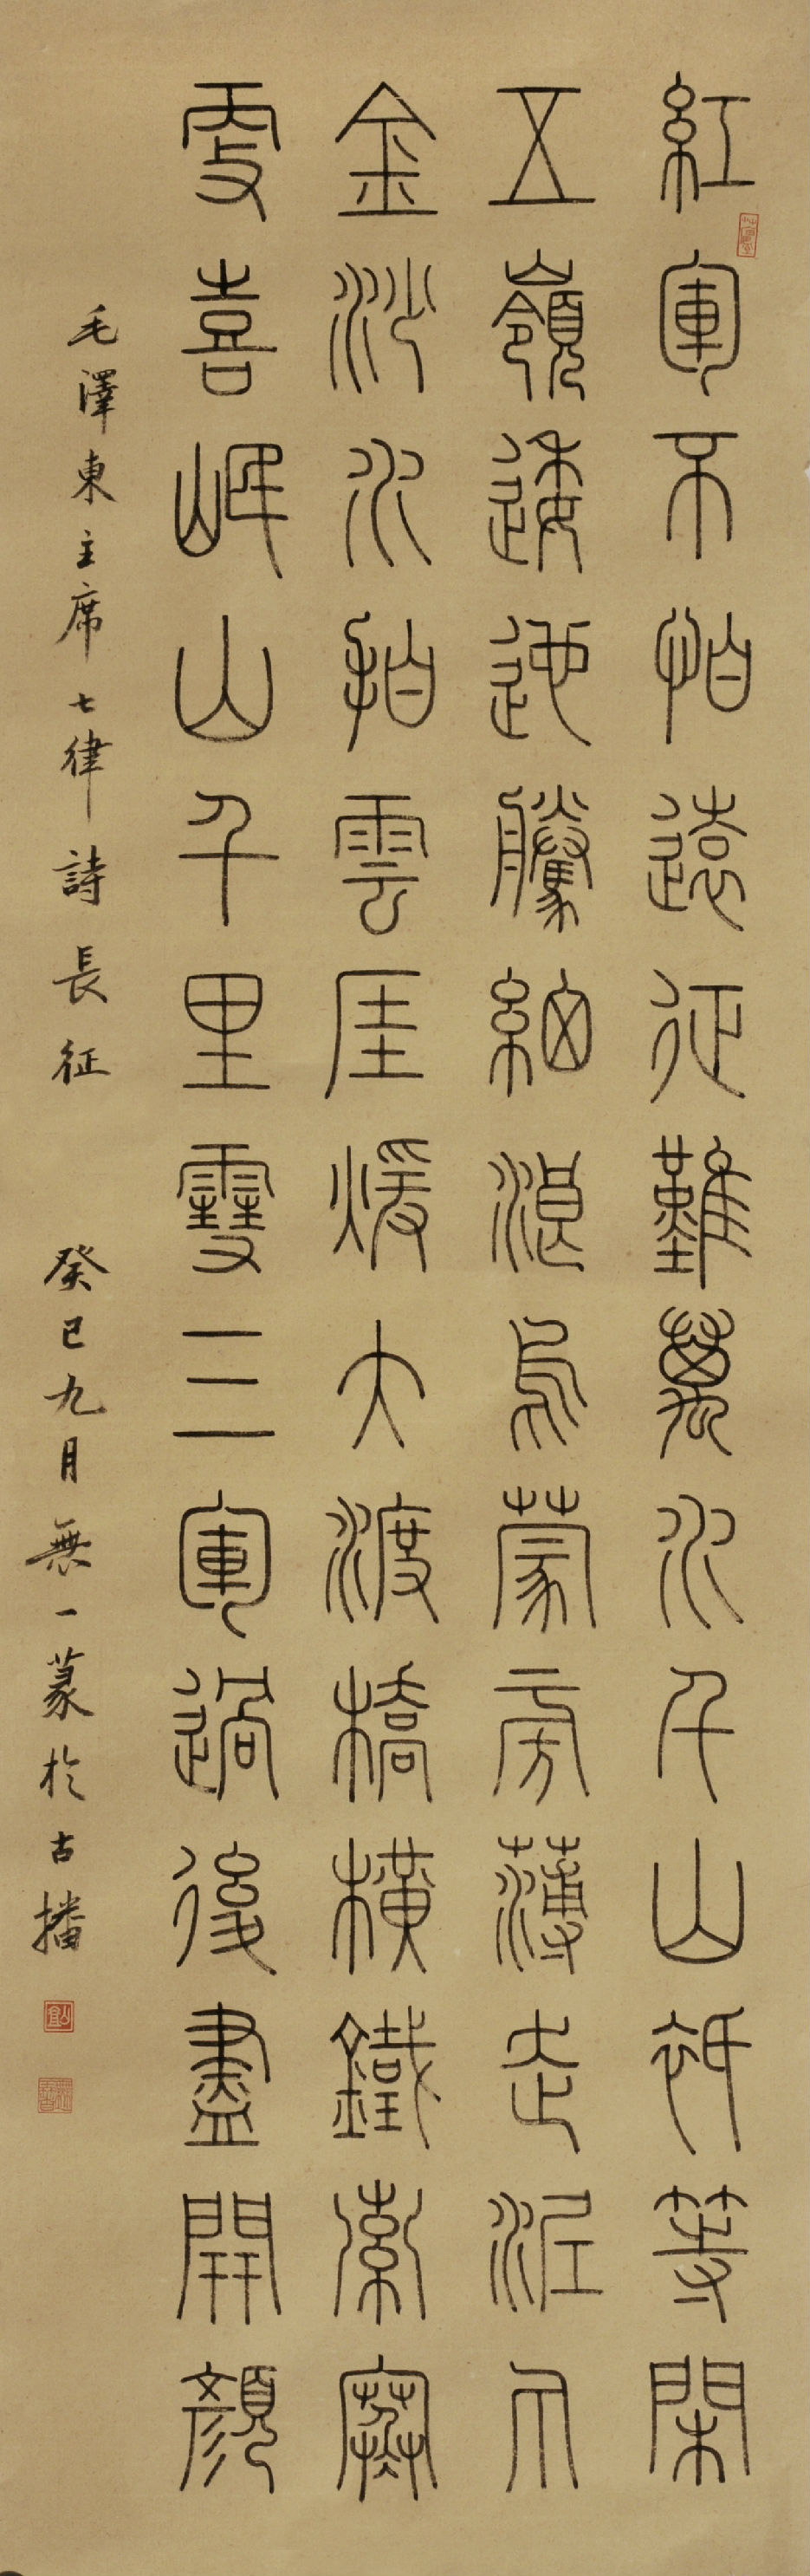 紅軍不怕遠征難萬水千山祗等閑
五嶺逶迤騰細浪烏蒙旁薄走泥丸
金沙水拍雲厓煖大渡橋橫鐵索寒
更喜岷山千里雪三軍過後盡開顏
毛澤東主席七律詩長征 癸巳九月無一篆於古播